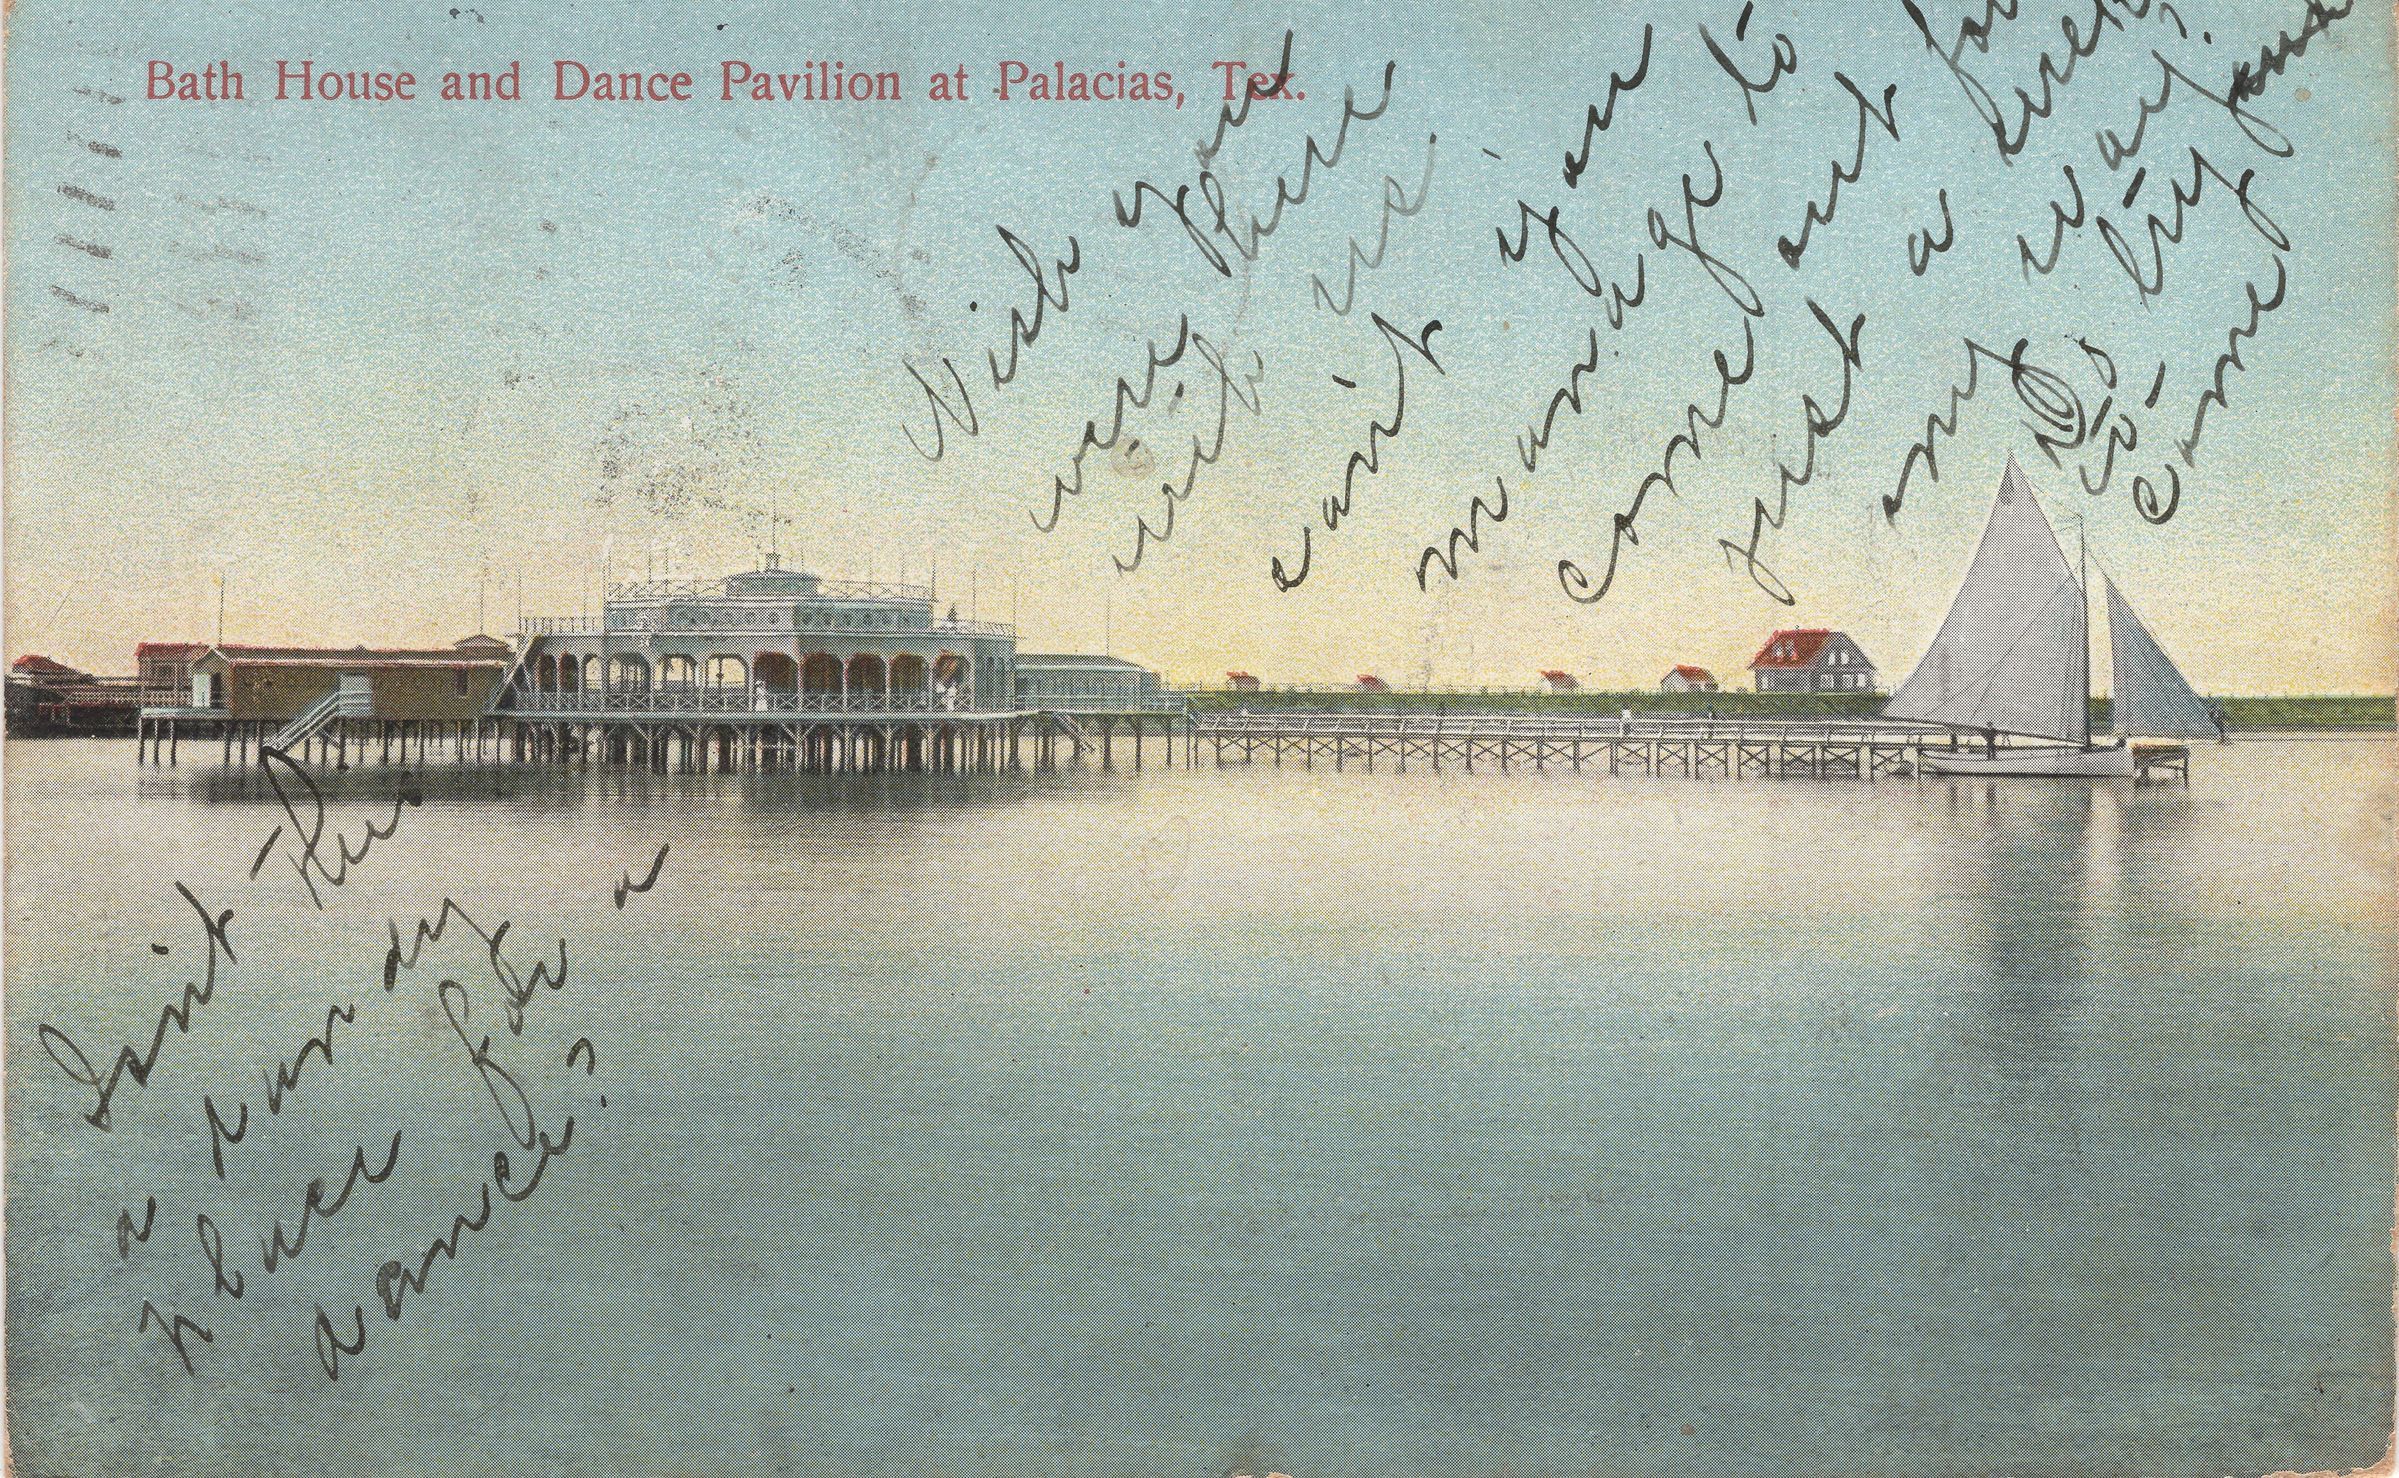 Bath House and Dance Pavilion at Palacias, Tex.
Wish you
were here
with us.
can't you
manage to
come out for
just a week
any way?
Do try
to
come
Isn't this
a dandy
place for a
dance?